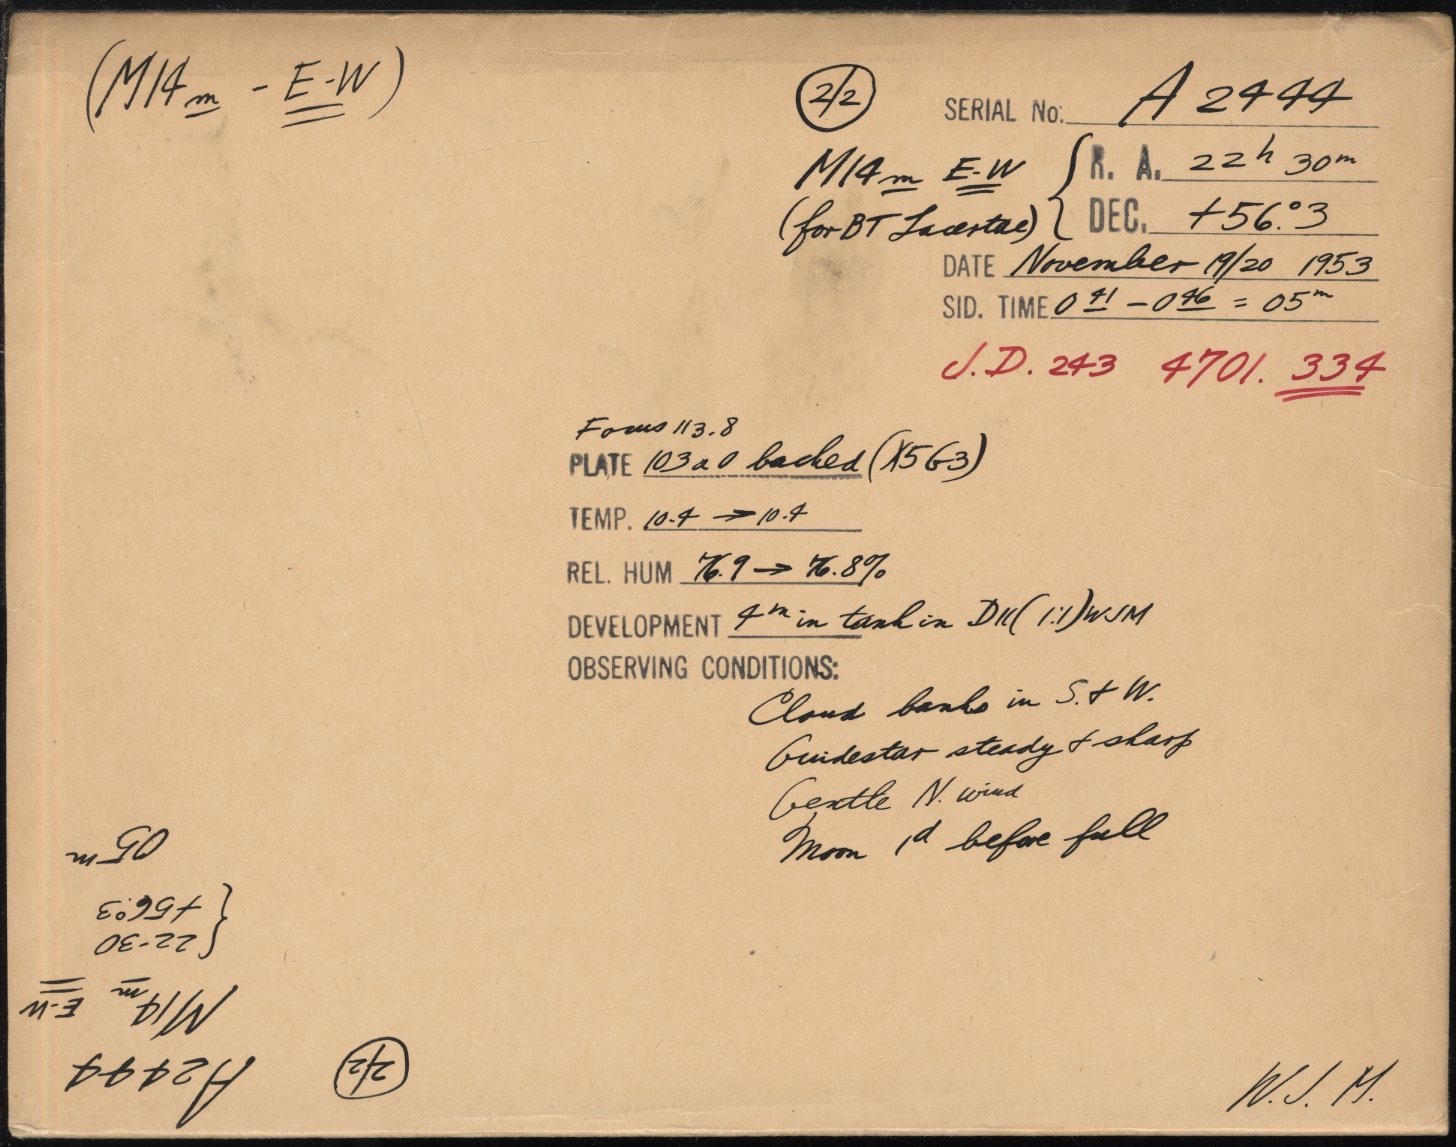 (M14m - E-W)
2/2
SERIAL No: A 2444
M14m E-W
(for BT Lacertae)
R. A. 22h 30m
DEC. +56.°3
DATE November 19/20 1953
SID. TIME 0 41 - 0 46 = 05m
J.D. 243 4701. 334
Focus 113.8
PLATE 103a0 backed (X5G3)
TEMP. 10.4 → 10.4
REL. HUM 76.9 → 76.8%
DEVELOPMENT 4m in tank in D11 (1:1) WJM
OBSERVING CONDITIONS:
Cloud banks in S. & W.
Guidestar steady & sharp
Gentle N. wind
Moon 1d before full
W. J. M.
2/2
A2444
M14m E-W
22-30
+56.°3
05m